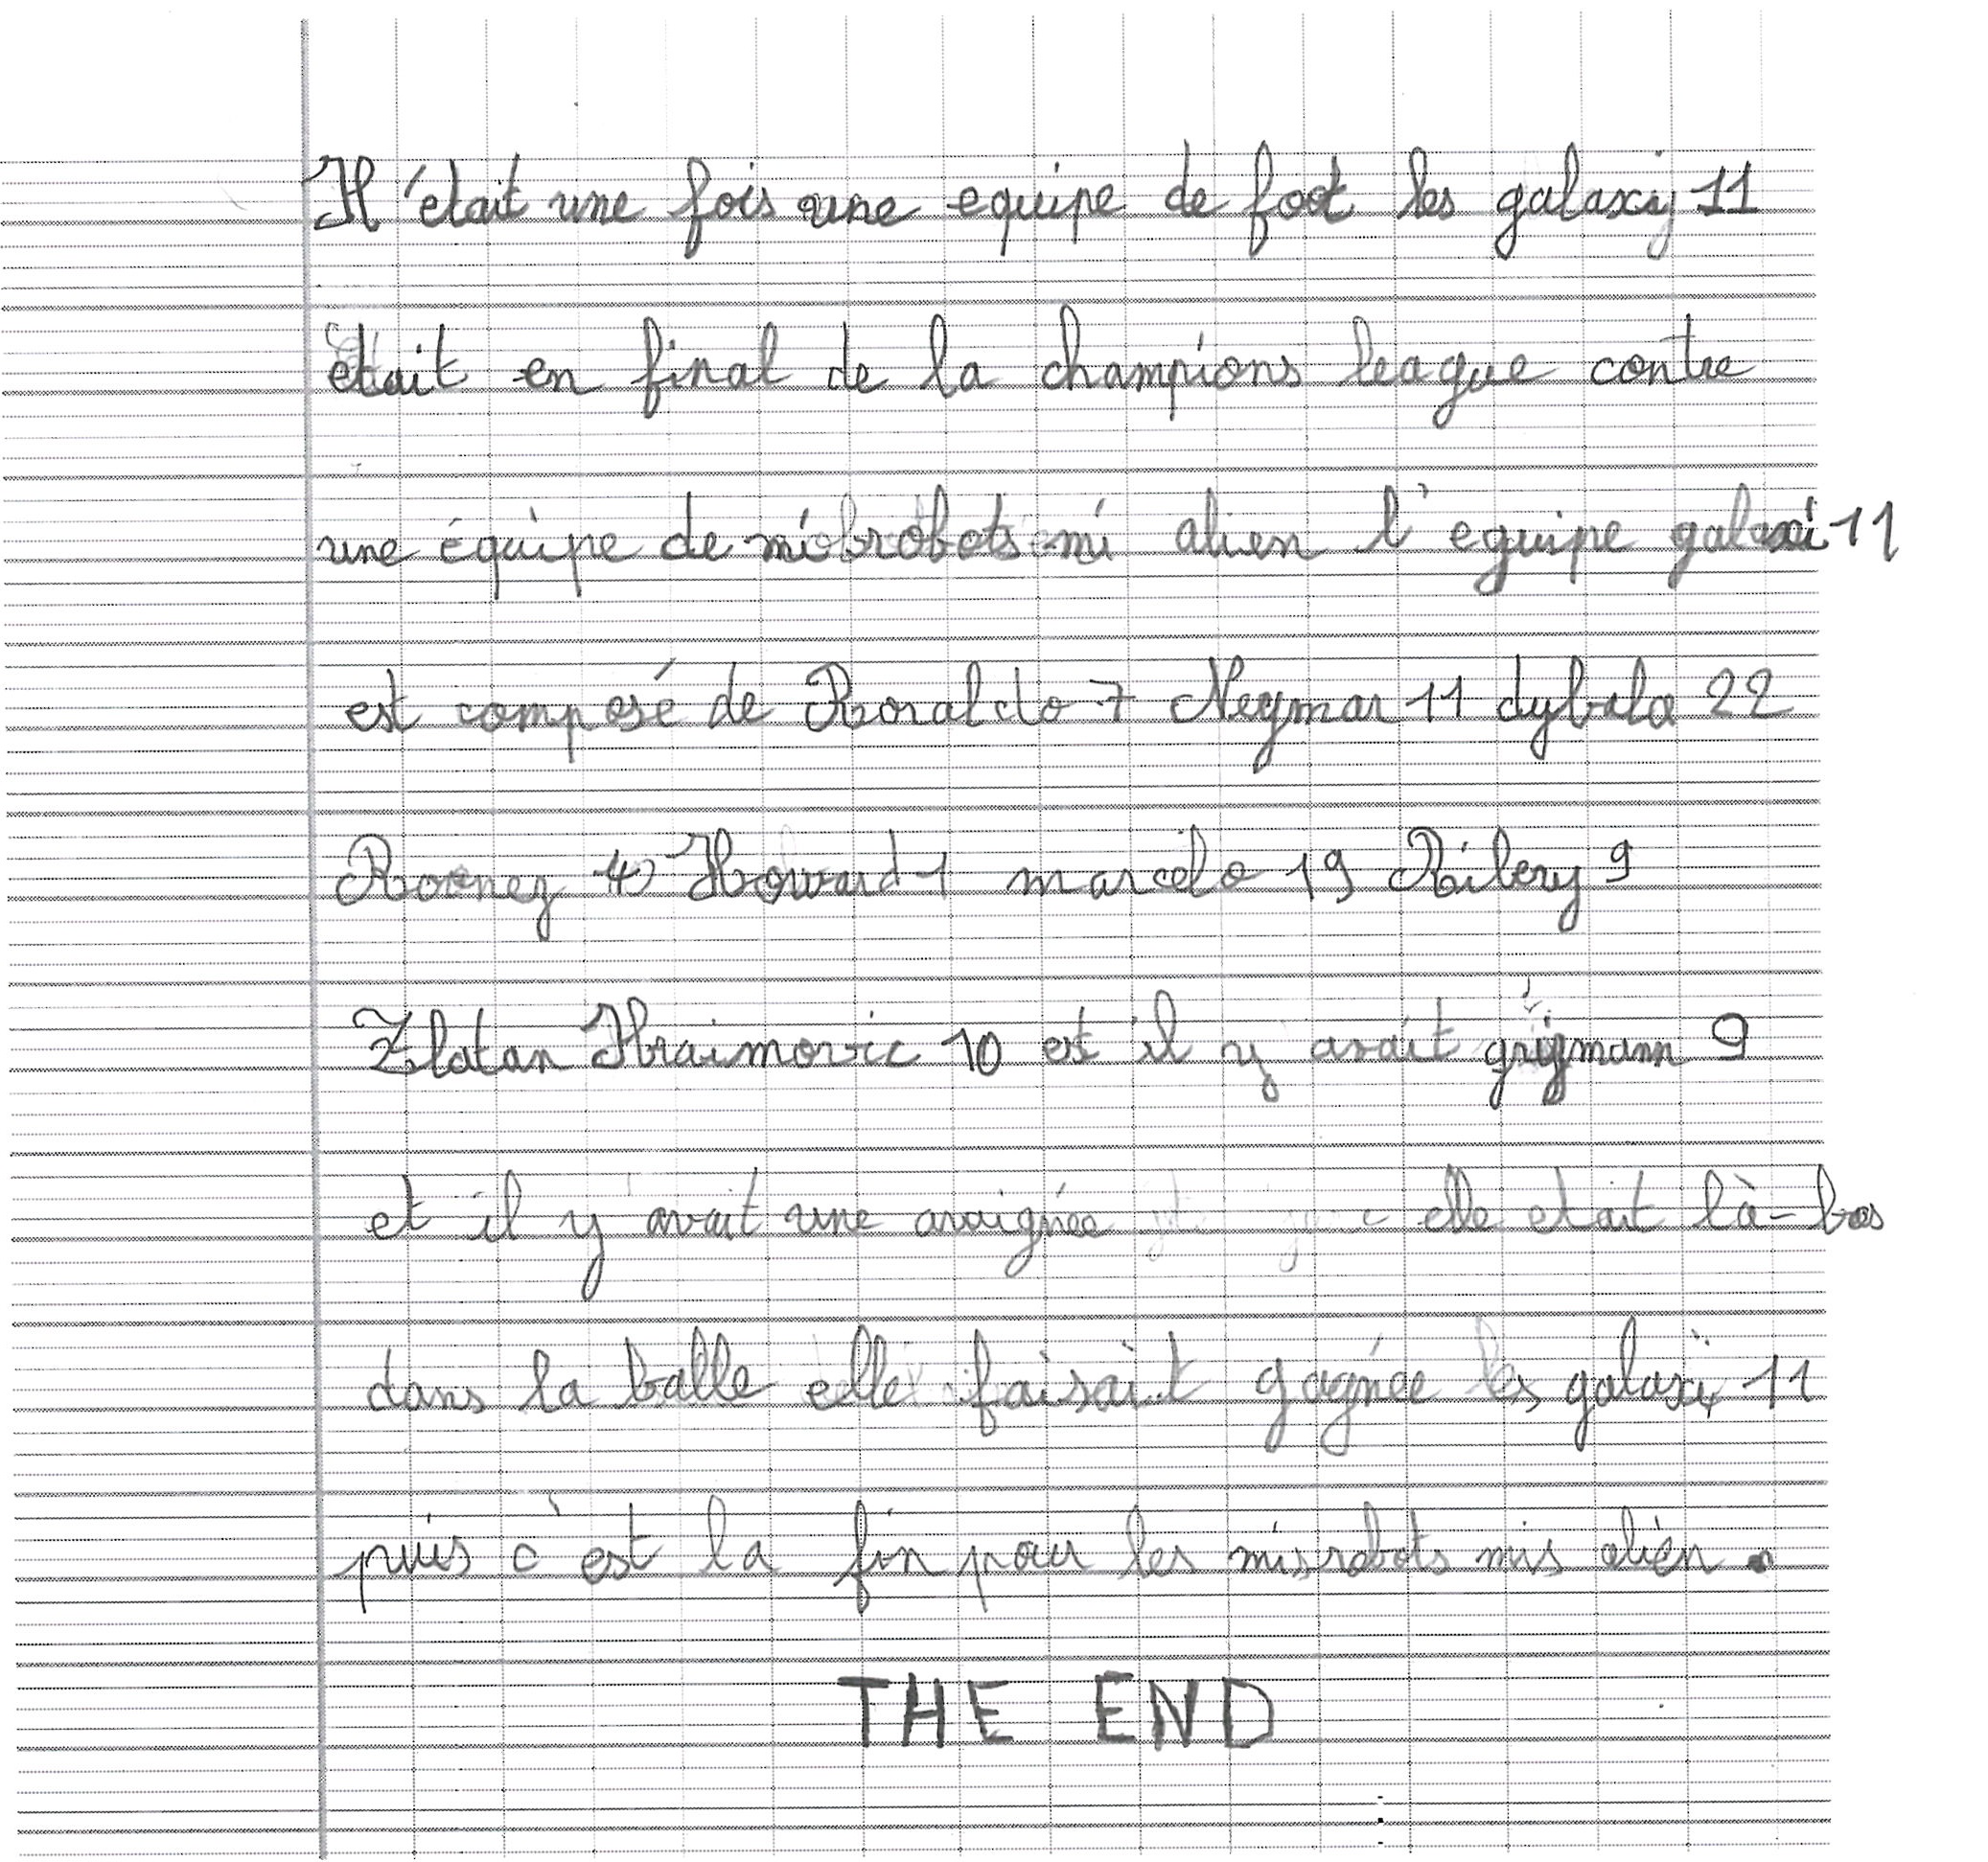 Il était une fois une equipe de foot les galaxiy 11
était en final de la champions league contre
une équipe de mi robots mi alien l'equipe galaxi 11
est composé de Ronaldo 7 Neymar 11 dybala 22
Rooney 4 Howard 1 marcelo 19 Ribery 9
Zlatan Ibraimovic 10 est il y avait grigmann 9
et il y avait une araignée elle etait là-bas
dans la balle elle faisait gagnée les galaxi 11
puis c'est la fin pour les mis robots mis alien.
THE END